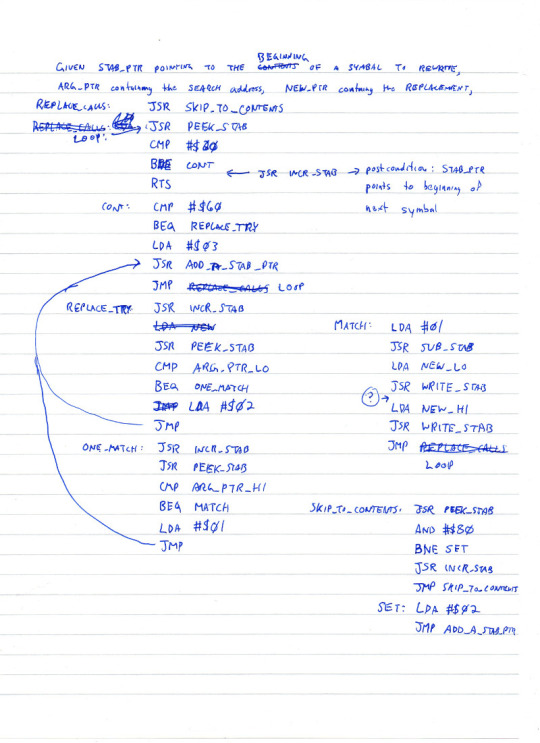 BEGINNING
GIVEN STAB_PTR POINTING TO THE CONTENTS OF A SYMBAL TO REWRITE,
ARG_PTR containing the SEARCH address, NEW_PTR containing the REPLACEMENT,
REPLACE_CALLS: JSR SKIP_TO_CONTENTS
REPLACE_CALLS: JSR PEEK_STAB
LOOP:
CMP #$00
BNE CONT ← JSR INCR_STAB → postcondition: STAB_PTR
RTS points to beginning of
next symbol
CONT: CMP #$60
BEQ REPLACE_TRY
LDA #$03
JSR ADD_A_STAB_PTR
JMP REPLACE_CALLS LOOP
REPLACE_TRY: JSR INCR_STAB
LDA NEW
JSR PEEK_STAB
CMP ARG_PTR_LO
BEQ ONE_MATCH
JMP LDA #$02
JMP
ONE_MATCH: JSR INCR_STAB
JSR PEEK_STAB
CMP ARG_PTR_HI
BEQ MATCH
LDA #$01
JMP
MATCH: LDA #01
JSR SUB_STAB
LDA NEW_LO
JSR WRITE_STAB
? → LDA NEW_HI
JSR WRITE_STAB
JMP REPLACE_CALLS
LOOP
SKIP_TO_CONTENTS: JSR PEEK_STAB
AND #$80
BNE SET
JSR INCR_STAB
JMP SKIP_TO_CONTENTS
SET: LDA #$02
JMP ADD_A_STAB_PTR